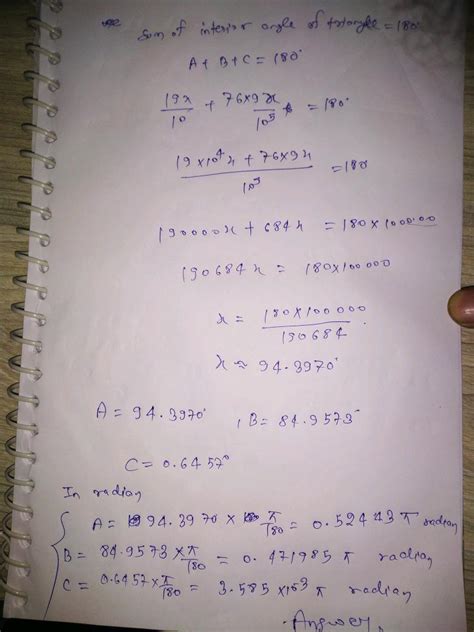 Sum of interior angle of triangle = 180°
A + B + C = 180°
19x/10 + 76×9x/10⁵ = 180°
19×10⁴x + 76×9x/10⁵ = 180
190000x + 684x = 180×100000
190684x = 180×100000
x = 180×100000/190684.
x ≈ 94.3970°
A = 94.3970° , B = 84.9573°
C = 0.6457°
In radian
A = 94.3970 × π/180 = 0.52443 π radian
B = 84.9573 × π/180 = 0.471985 π radian
C = 0.6457 × π/180 = 3.585×10⁻³ π radian
Answer.